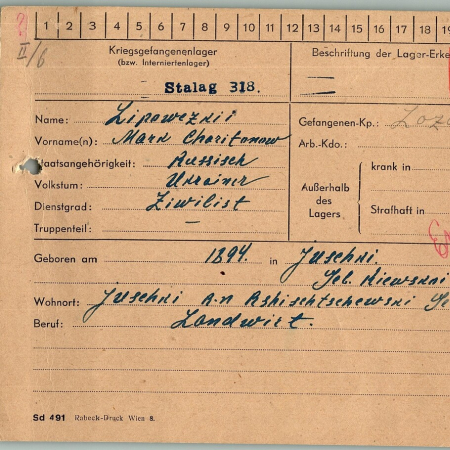 1 2 3 4 5 6 7 8 9 10 11 12 13 14 15 16 17 18 19
II/6
Kriegsgefangenenlager
(bzw. Interniertenlager)
Beschriftung der Lager-Erke
Stalag 318.
Name: Lipowezkii
Gefangenen-Kp.:
Vorname(n): Mark Charitonow
Arb.-Kdo.:
Staatsangehörigkeit: Russisch
krank in
Volkstum: Ukrainer
Außerhalb
des
Lagers
Dienstgrad: Ziwilist
Strafhaft in
Truppenteil: –
Geboren am 1894. in Juschki.
Geb. Kiewski
Wohnort: Juschki R.n Rshischtschewski
Beruf: Landwirt.
Sd 491 Rabeck-Druck Wien 8.